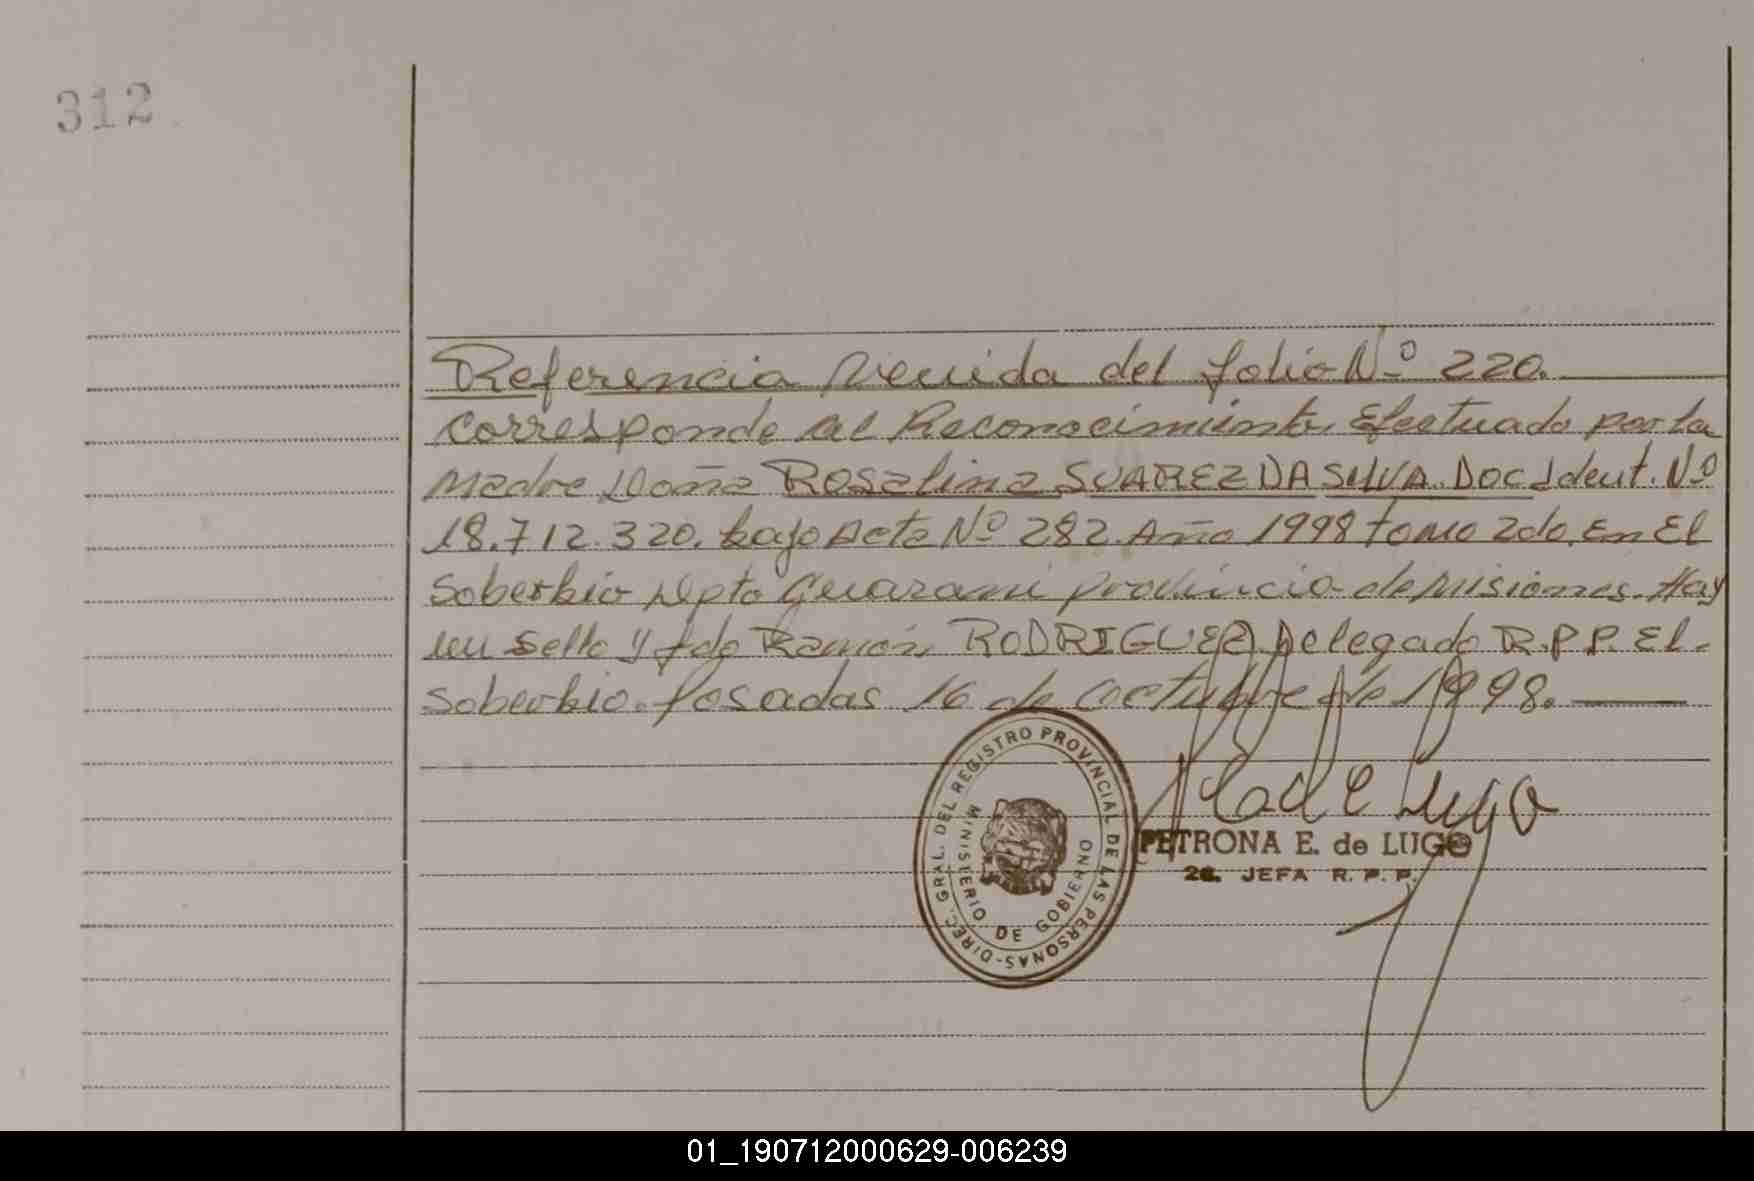 312
Referencia Venida del folio Nº 220.
Corresponde al Reconocimiento Efectuado por la
Madre Doña ROSalina SUAREZ DA SILVA. DOC Ident. Nº
18.712.320. bajo Acta Nº 282. Año 1998 tomo 2do. En El
Soberbio Dpto Guarani provincia de Misiones. Hay
un sello y fdo Ramón RODRIGUEZ Delegado R.P.P. El-
Soberbio. Posadas 16 de Octubre de 1998.
DIREC. GRAL. DEL REGISTRO PROVINCIAL DE LAS PERSONAS-
MINISTERIO DE GOBIERNO
de Lugo
PETRONA E. de LUGO
2a. JEFA R. P. P.
01_190712000629-006239